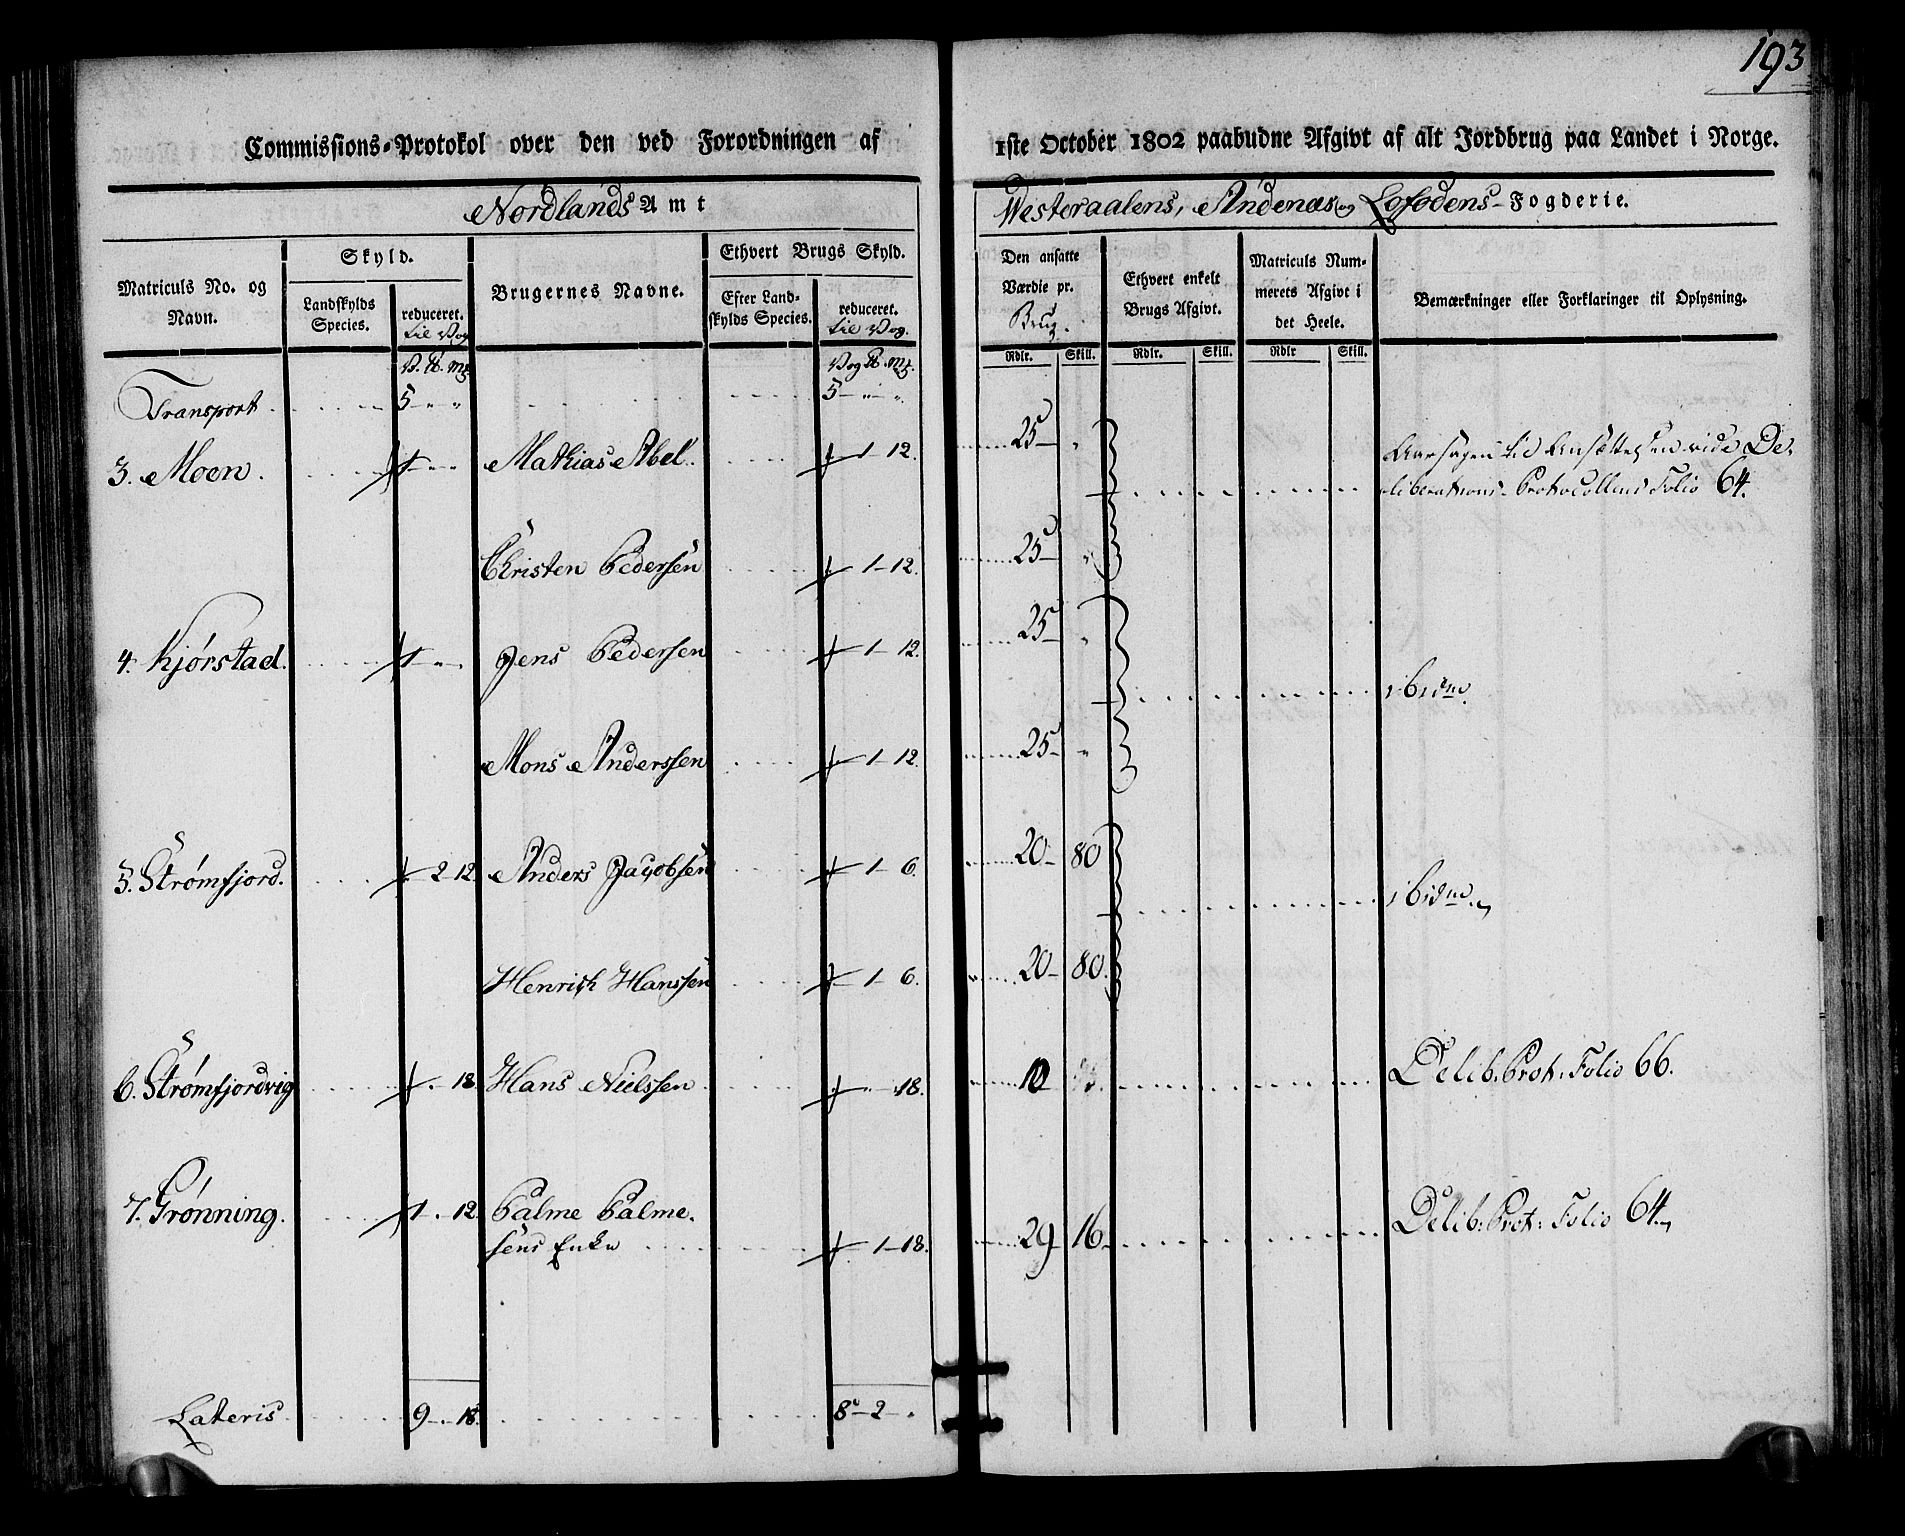 193
Commissions-Protokol over den ved Forordningen af 1ste October 1802 paabudne Afgivt af alt Jordbrug paa Landet i Norge.
Nordlands Amt
Westeraalens, Andenæs og Lofodens-Fogderie.
Matriculs No. og Navn.
Skyld.
Landskylds Species.
reduceret. til Vog
Brugernes Navne.
Ethvert Brugs Skyld.
Efter Landskylds Species.
reduceret. til Vog.
Den ansatte Værdie pr. Brug.
Ethvert enkelt Brugs Afgivt.
Matriculs Nummerets Afgivt i det Heele.
Bemærkninger eller Forklaringer til Oplysning.
Rdlr. Skill. Rdlr. Skill. Rdlr Skill.
V. ℔. m℔. Vog ℔. m℔.
Transport 5 - " " 5 - " - "
3. Moen. 1 - - - Mathias Abel. - 1 - 12. 25 - "
Aarsagen til Ansættelsen vide De-
liberations-Protocollens Folio 64.
Christen Pedersen - 1 - 12. 25 - "
4. Kjørstad. 1 - - Jens Pedersen - 1 - 12. 25 - " ibidm.
Mons Anderssen - 1 - 12. 25 - "
5. Strømfjord. - 2 - 12 Anders Jacobsen - 1 - 6. 20 - 80 ibidm.
Henrich Hanssen - 1 - 6. 20 - 80.
6. Strømfjordvig - . 18. Hans Nielssen - - 18. 10 Delib. Prot: Folio 66.
7. Grønning. 1 . - 12. Palme Palme-
sens Enke - 1 - 18. 29 16 - Delib: Prot: Folio 64.
Lateris 9 - . 18. 8 - 2 - "